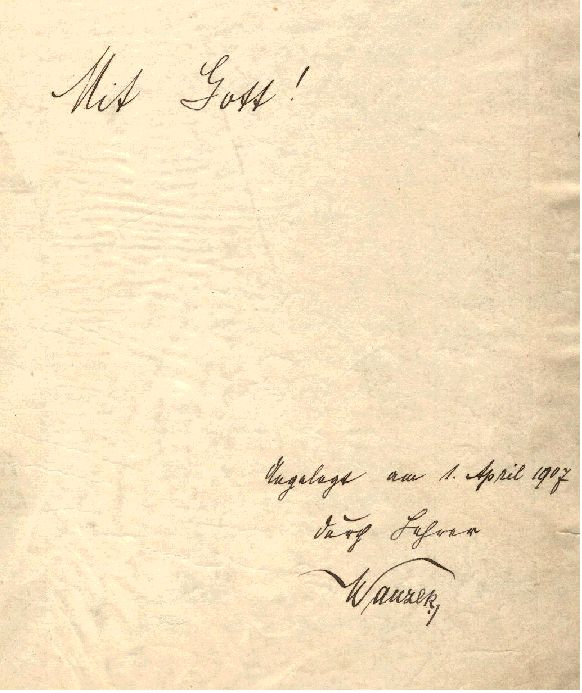 Mit Gott!
Angelegt am 1. April 1907
durch Lehrer
Wanzek